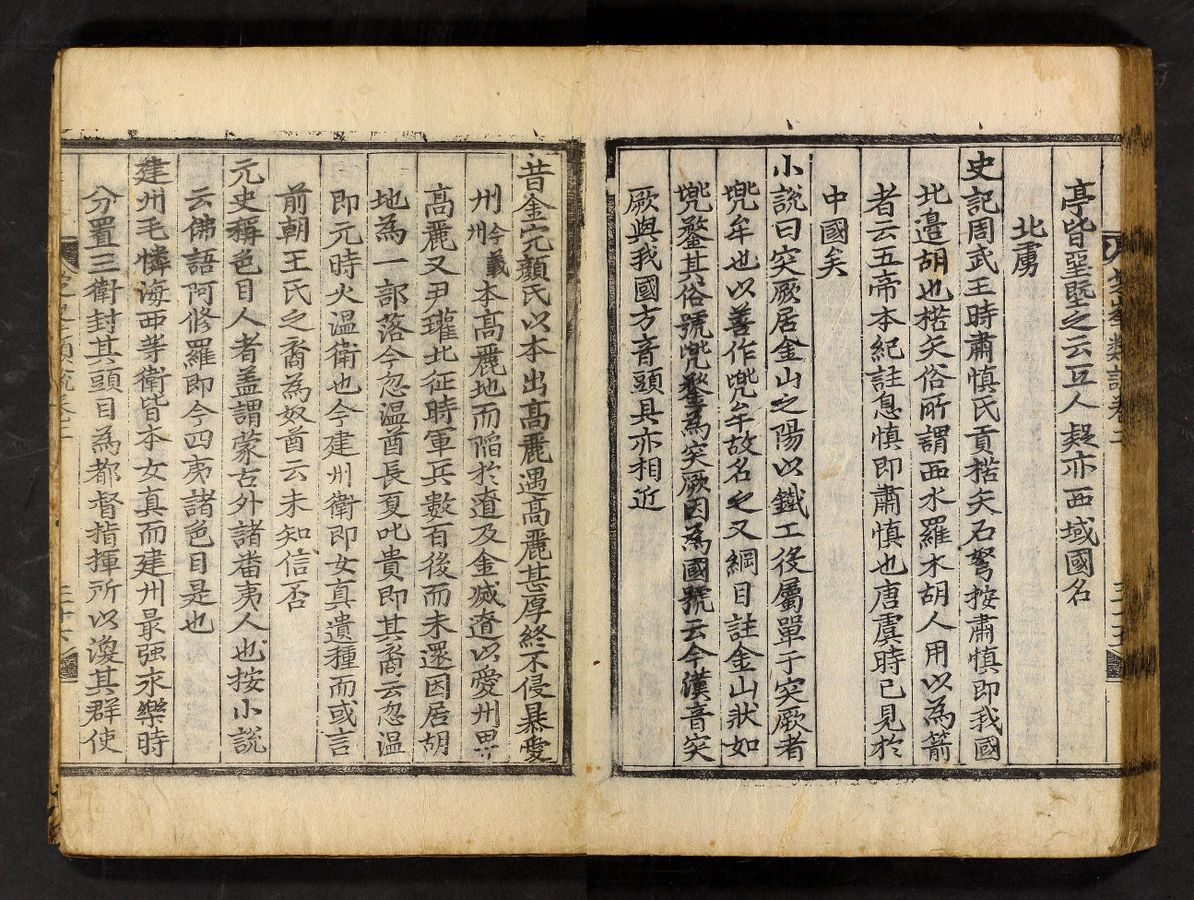 芝峯類說卷二
三十五
亭皆望墅之云五人疑亦西域國名
北虜
史記周武王時肅慎氏貢楛矢石弩按肅慎即我國
北邊胡也楛矢俗所謂西水羅木胡人用以為箭
者云五帝本紀註息慎即肅慎也唐虞時已見於
中國矣
小說曰突厥居金山之陽以鐵工後屬單于突厥者
兜牟也以善作兜牟故名之又綱目註金山狀如
兜鍪其俗號兜鍪為突厥因為國號云今漢音突
厥與我國方音頭具亦相近
昔金完顏氏以本出高麗遇高麗甚厚終不侵暴愛
州今義州本高麗地而陷於遼及金滅遼以愛州畀
高麗又尹瓘北征時軍兵數百後而未還因居胡
地為一部落今忽溫酋長夏叱貴即其裔云忽溫
即元時火溫衛也今建州衛即女真遺種而或言
前朝王氏之裔為奴酋云未知信否
元史稱色目人者盖謂蒙古外諸畨夷人也按小說
云佛語阿修羅即今四夷諸色目是也
建州毛憐海西等衛皆本女真而建州最强永樂時
分置三衛封其頭目為都督指揮所以渙其群使
芝峯類說卷二
三十六